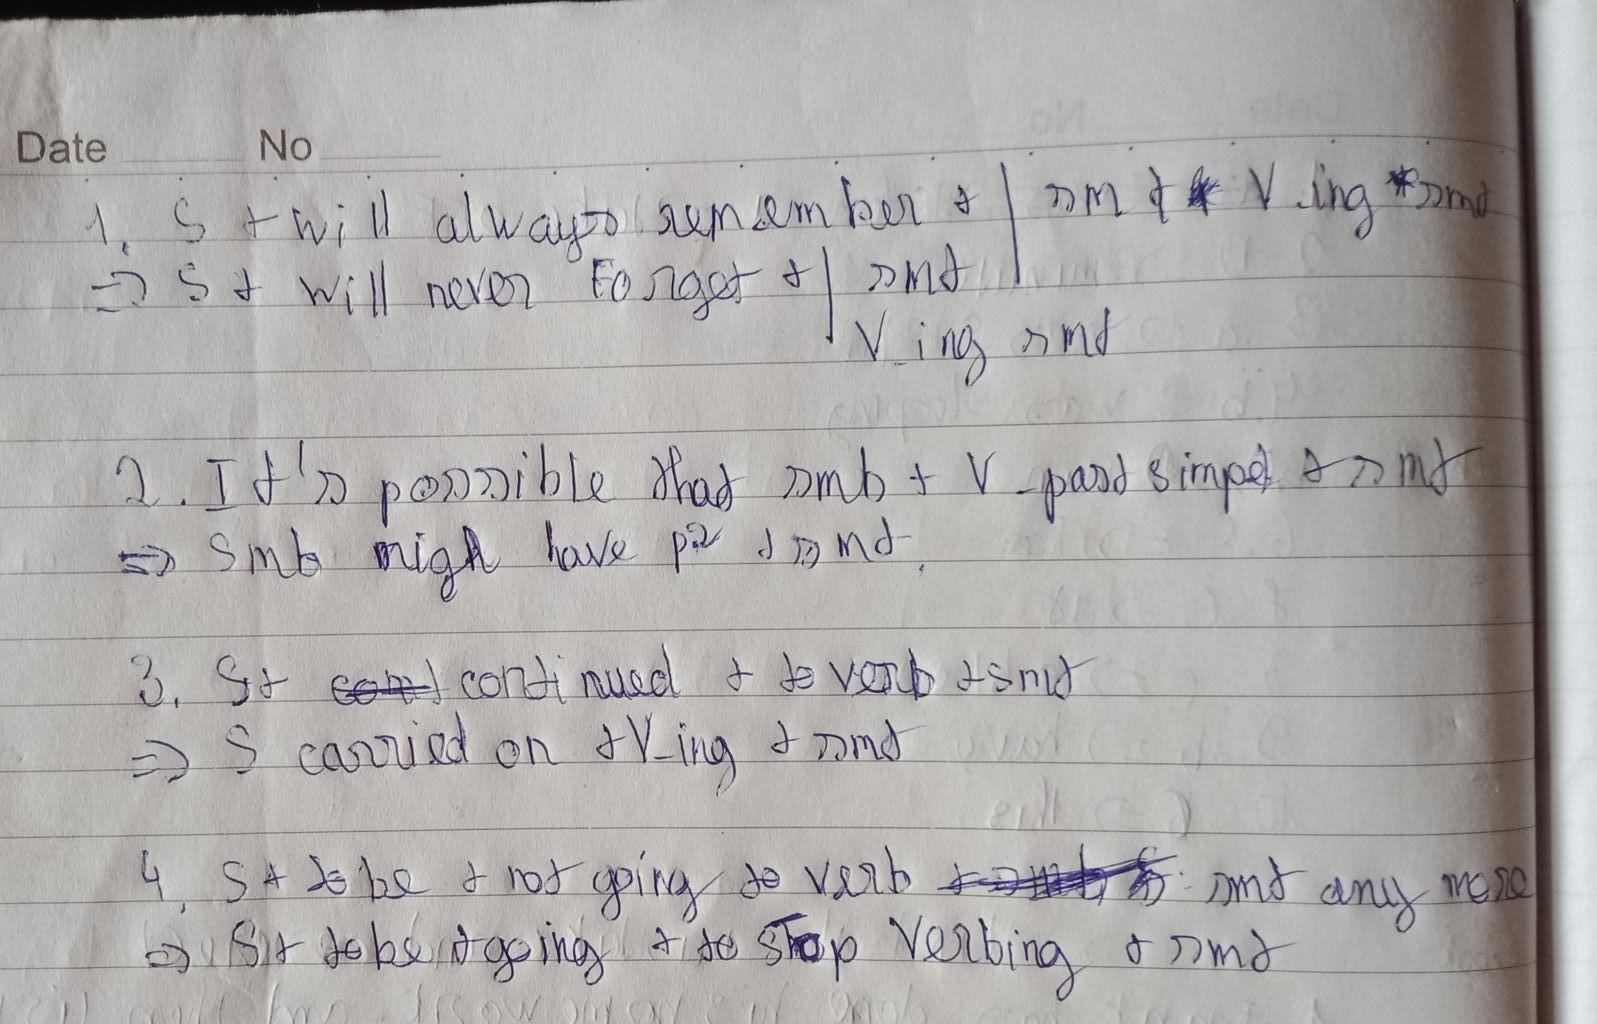 Date No
1. S + will always remember + | smt + V_ing smt
=> S + will never Forget + | smt
V_ing smt
2. It's possible that smb + V_past simpel + smt
=> Smb migh have p2 + smt.
3. S+ continued + to verb + smt
=> S carried on + V_ing + smt
4. S + to be + not going to verb smt any more
=> S + to be + going + to stop Verbing + smt